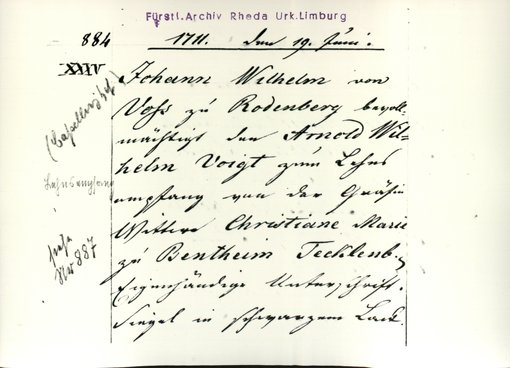 Fürstl. Archiv Rheda Urk. Limburg
884
1711. den 19. Juni.
XXIV
Johann Wilhelm von
Voß zu Rodenberg bevoll-
mächtigt den Arnold Wil-
helm Voigt zum Lehns
empfang von der Gräfin
Wittwe Christiane Marie
zu Bentheim Tecklenb.
Eigenhändige Unterschrift.
Siegel in schwarzem Lack.
(Capellenhof)
Lehnsempfang
siehe
Nr 887